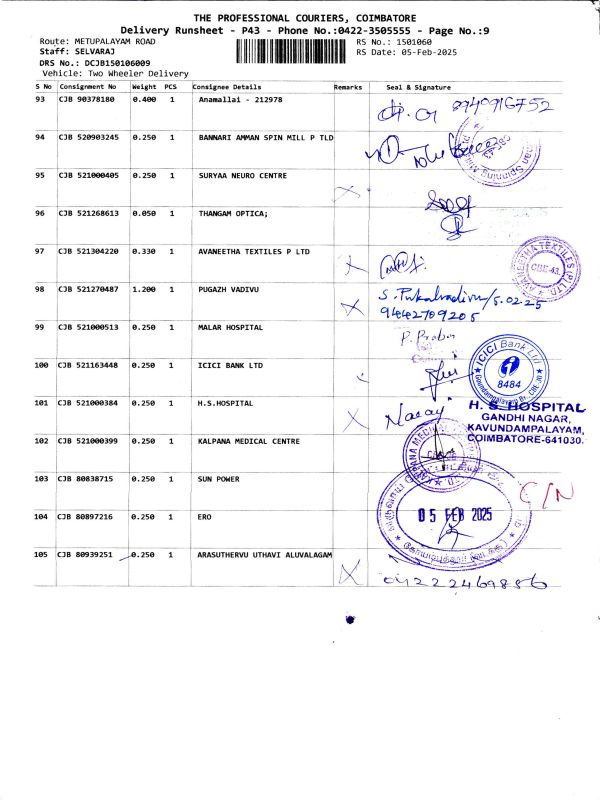 THE PROFESSIONAL COURIERS, COIMBATORE
Delivery Runsheet - P43 - Phone No.:0422-3505555 - Page No.:9
Route: METUPALAYAM ROAD RS No.: 1501060
Staff: SELVARAJ RS Date: 05-Feb-2025
DRS No.: DCJB150106009
Vehicle: Two Wheeler Delivery
S No Consignment No Weight PCS Consignee Details Remarks Seal & Signature
93 CJB 90378180 0.400 1 Anamallai - 212978 8940916752
94 CJB 520903245 0.250 1 BANNARI AMMAN SPIN MILL P TLD
95 CJB 521000405 0.250 1 SURYAA NEURO CENTRE
96 CJB 521268613 0.050 1 THANGAM OPTICA;
97 CJB 521304220 0.330 1 AVANEETHA TEXTILES P LTD AVANEETHA TEXTILES (P) LTD. CBE-43.
98 CJB 521270487 1.200 1 PUGAZH VADIVU S. Pukalvadivu/5.02.25
9442709205
99 CJB 521000513 0.250 1 MALAR HOSPITAL
100 CJB 521163448 0.250 1 ICICI BANK LTD ICICI Bank Ltd 8484
101 CJB 521000384 0.250 1 H.S.HOSPITAL H. S. HOSPITAL
GANDHI NAGAR,
KAVUNDAMPALAYAM,
COIMBATORE-641030.
102 CJB 521000399 0.250 1 KALPANA MEDICAL CENTRE
103 CJB 80838715 0.250 1 SUN POWER C/N
104 CJB 80897216 0.250 1 ERO 05 FEB 2025
105 CJB 80939251 0.250 1 ARASUTHERVU UTHAVI ALUVALAGAM 04222469886